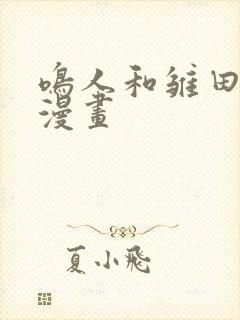 鳴人和雏田
漫畫
夏小飛